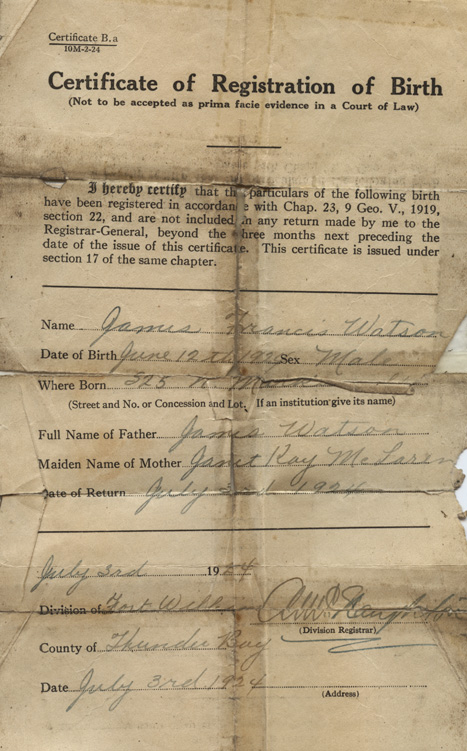 Certificate B.a
10M-2-24
Certificate of Registration of Birth
(Not to be accepted as prima facie evidence in a Court of Law)
I hereby certify that the particulars of the following birth
have been registered in accordance with Chap. 23, 9 Geo. V., 1919,
section 22, and are not included in any return made by me to the
Registrar-General, beyond the three months next preceding the
date of the issue of this certificate. This certificate is issued under
section 17 of the same chapter.
Name James Francis Watson
Date of Birth June 12th Sex Male
Where Born 325 N
(Street and No. or Concession and Lot. If an institution give its name)
Full Name of Father James Watson
Maiden Name of Mother Janet Kay McLaren
Date of Return July 3rd 1924
July 3rd 1924
Division of Fort William
(Division Registrar)
County of Thunder Bay
Date July 3rd 1924
(Address)